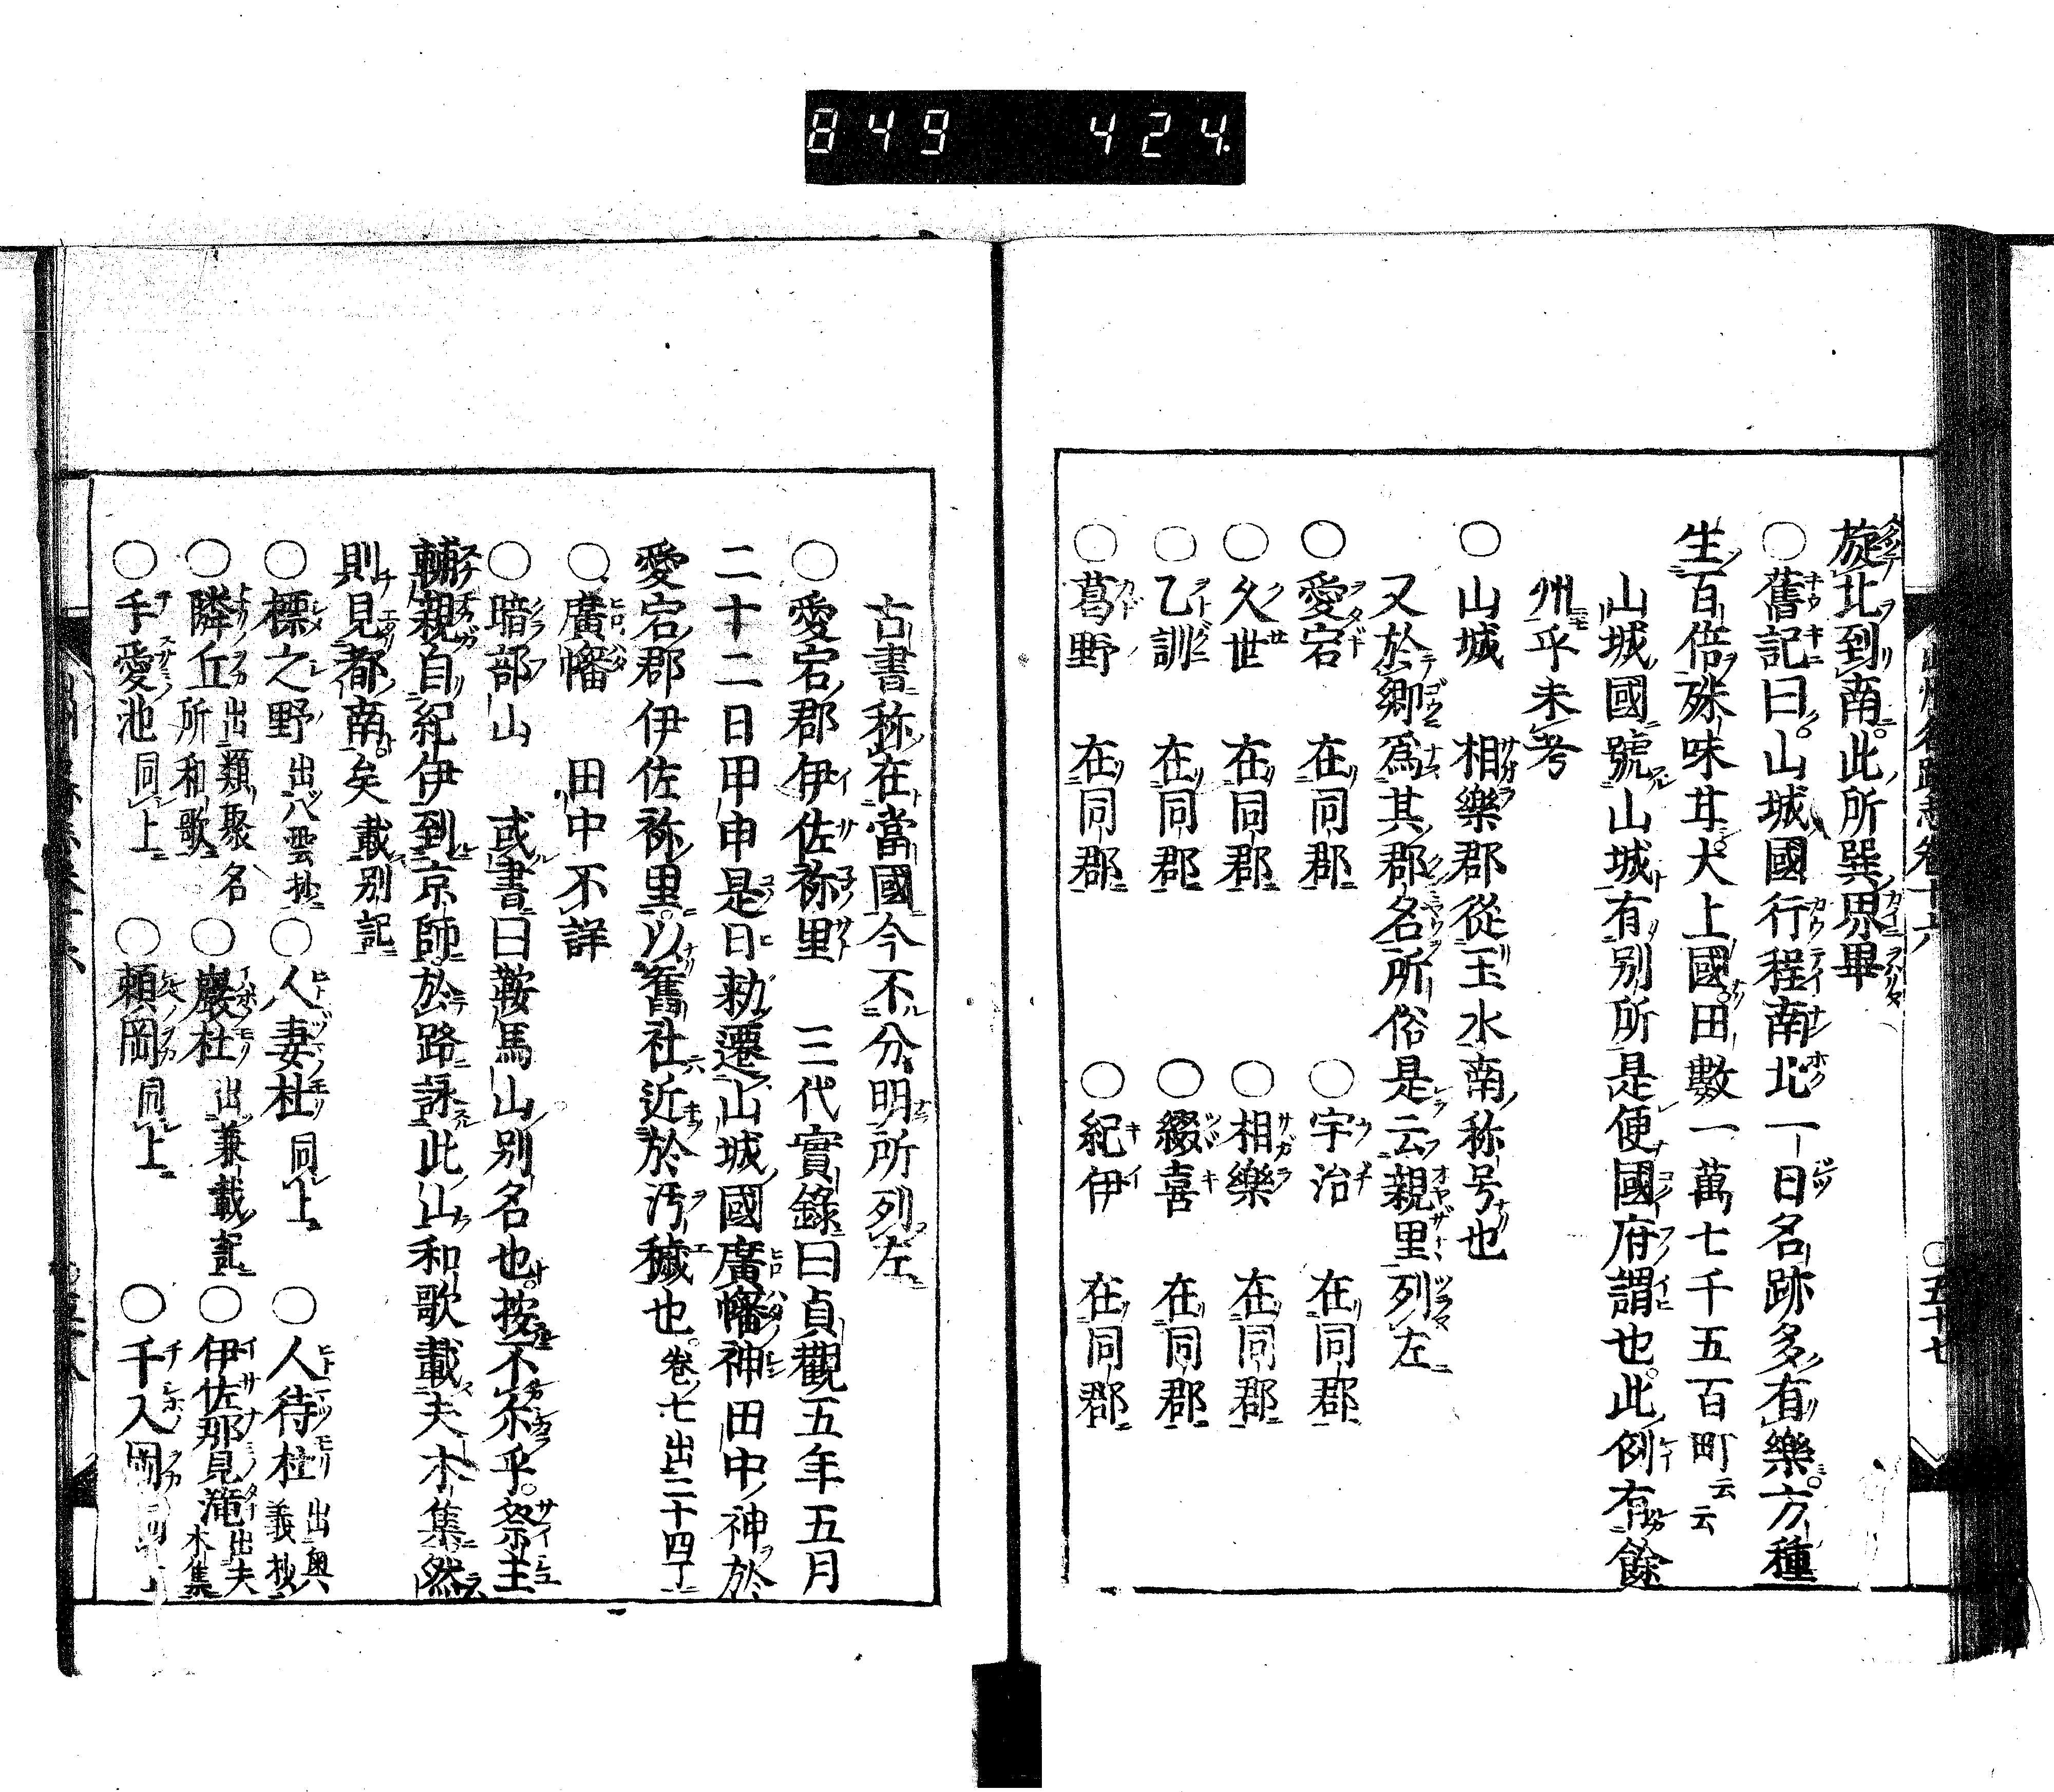 849 424.
旋北到南此所巽界畢
○舊記曰山城國行程南北一日名跡多有樂方種
生百倍殊味甘大上國田數一萬七千五百町云云
山城國號山城有別所是便國府謂也此例有餘
州乎未考
○山城 相樂郡從玉水南称号也
又於郷爲其郡名所俗是云親里列左
○愛宕 在同郡 ○宇治 在同郡
○久世 在同郡 ○相樂 在同郡
○乙訓 在同郡 ○綴喜 在同郡
○葛野 在同郡 ○紀伊 在同郡
古書称在當國今不分明所列左
○愛宕郡伊佐祢里 三代實錄曰貞觀五年五月
二十二日甲申是日勅遷山城國廣幡神田中神於
愛宕郡伊佐祢里以舊社近於汚穢也 卷七出二十四丁
○廣幡 田中不詳
○暗部山 或書曰鞍馬山別名也按不尓乎祭主
輔親自紀伊到京師於路詠此山和歌載夫木集然
則見都南矣載別記
○標之野 出八雲抄 ○人妻杜 同上 ○人待杜 出奥義抄
○隣丘 出類聚名所和歌 ○巖杜 出兼載記 ○伊佐那見滝 出夫木集
○手愛池 同上 ○頼岡 同上 ○千入岡